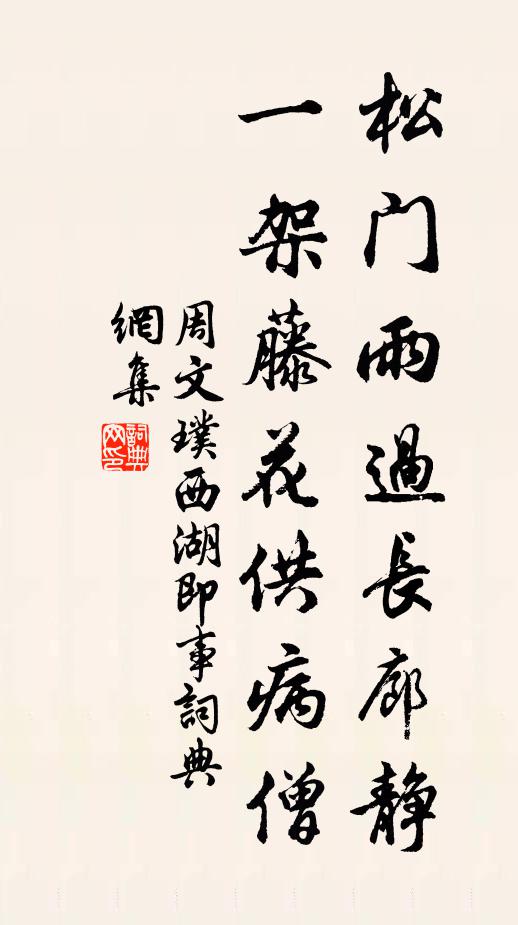 松门雨過長廊静
一架藤花供病僧
周文璞西湖即事詞典
網集
詞典網印